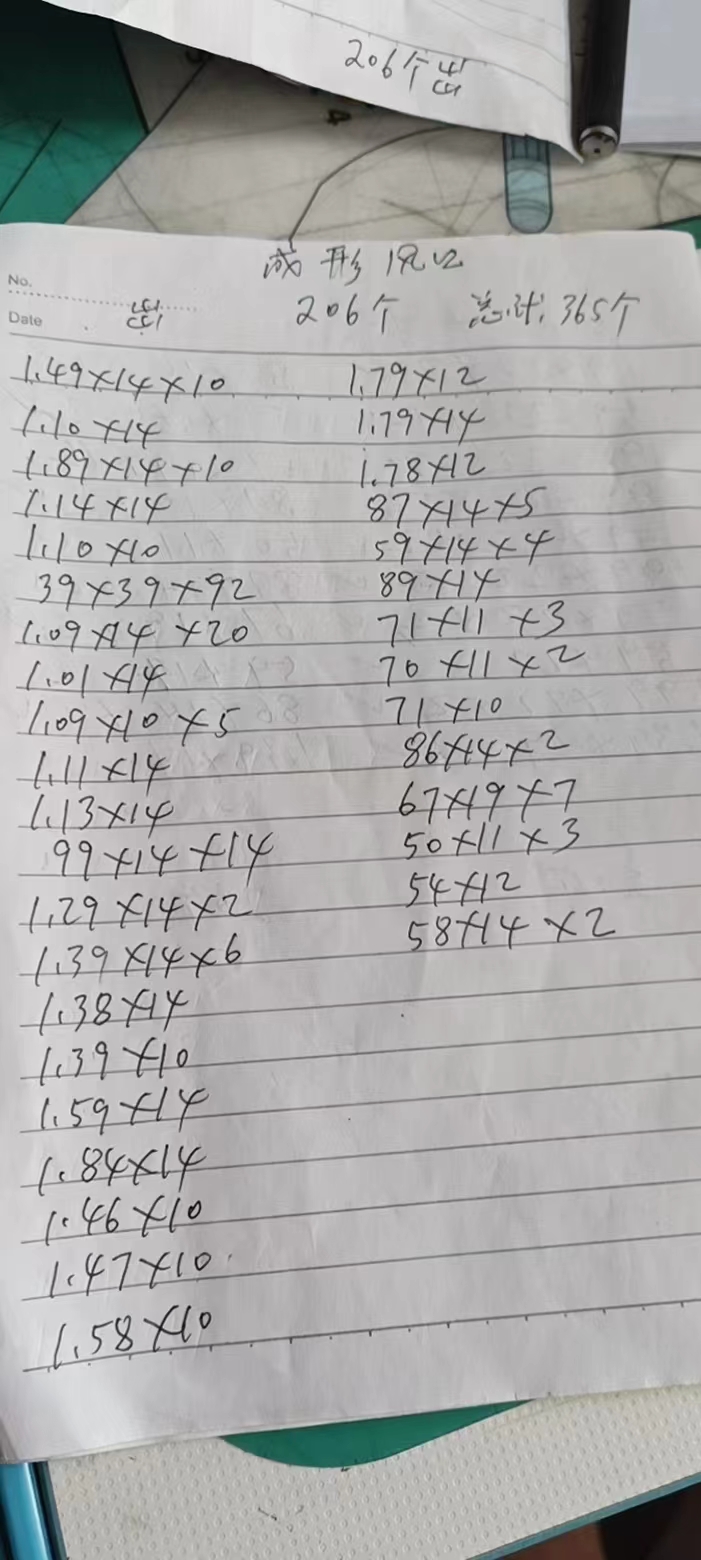 206个出
成形风口
No.
Date
出 206个 总计:365个
1.49×14×10
1.10×14
1.89×14×10
1.14×14
1.10×10
39×39×92
1.09×14×20
1.01×14
1.09×10×5
1.11×14
1.13×14
99×14×14
1.29×14×2
1.39×14×6
1.38×14
1.39×10
1.59×14
1.84×14
1.46×10
1.47×10
1.58×10
1.79×12
1.79×14
1.78×12
87×14×5
59×14×4
89×14
71×11×3
70×11×2
71×10
86×14×2
67×19×7
50×11×3
54×12
58×14×2